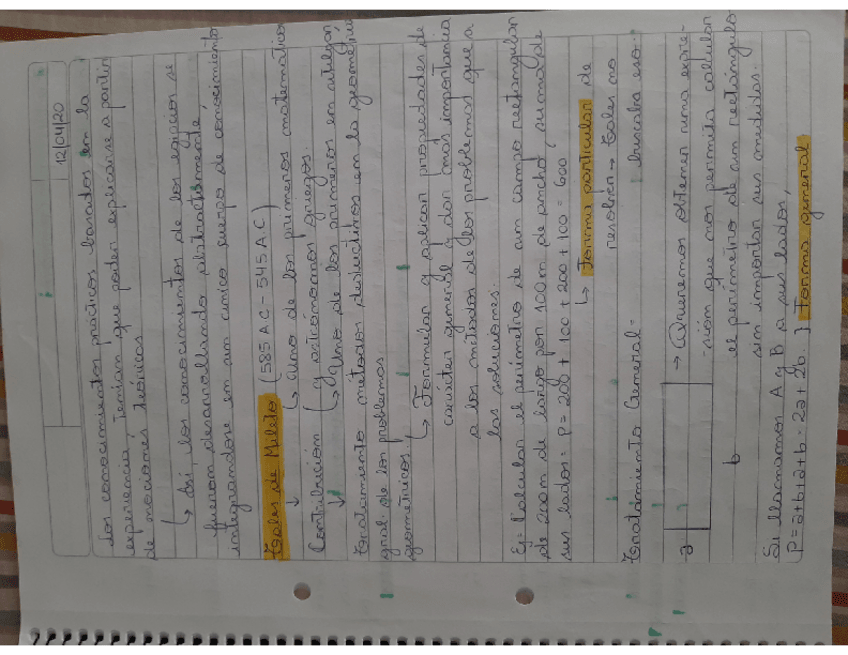 12/04/20
Los conocimientos prácticos basados en la
experiencia, tenían que poder explicarse a partir
de nociones teóricas.
↳ Así los conocimientos de los egipcios se
fueron desarrollando abstractamente,
integrandose en un unico cuerpo de conocimiento
Tales de Mileto (585 AC - 545 AC)
↓ ↳ Uno de los primeros matematicos
Contribución y astrónomos griegos.
↓ ↳ Uno de los primeros en utilizar
Tratamiento métodos deductivos en la geometría
gral. de los problemas
geometricos,
↳ Formular y aplicar propiedades de
carácter general y dar mas importancia
a los métodos de los problemas que a
las soluciones.
Ej: Calcular el perímetro de un campo rectangular
de 200m de largo por 100m de ancho, suma de
sus lados = P = 200 + 100 + 200 + 100 = 600,
↳ Forma particular de
resolver → Tales no
buscaba eso.
Tratamiento General =
→ Queremos obtener una expre-
-sión que nos permita calcular
el perímetro de un rectángulo
sin importar sus medidas.
a
b
Si llamamos A y B a sus lados,
P = a+b+a+b = 2a + 2b ] Forma general